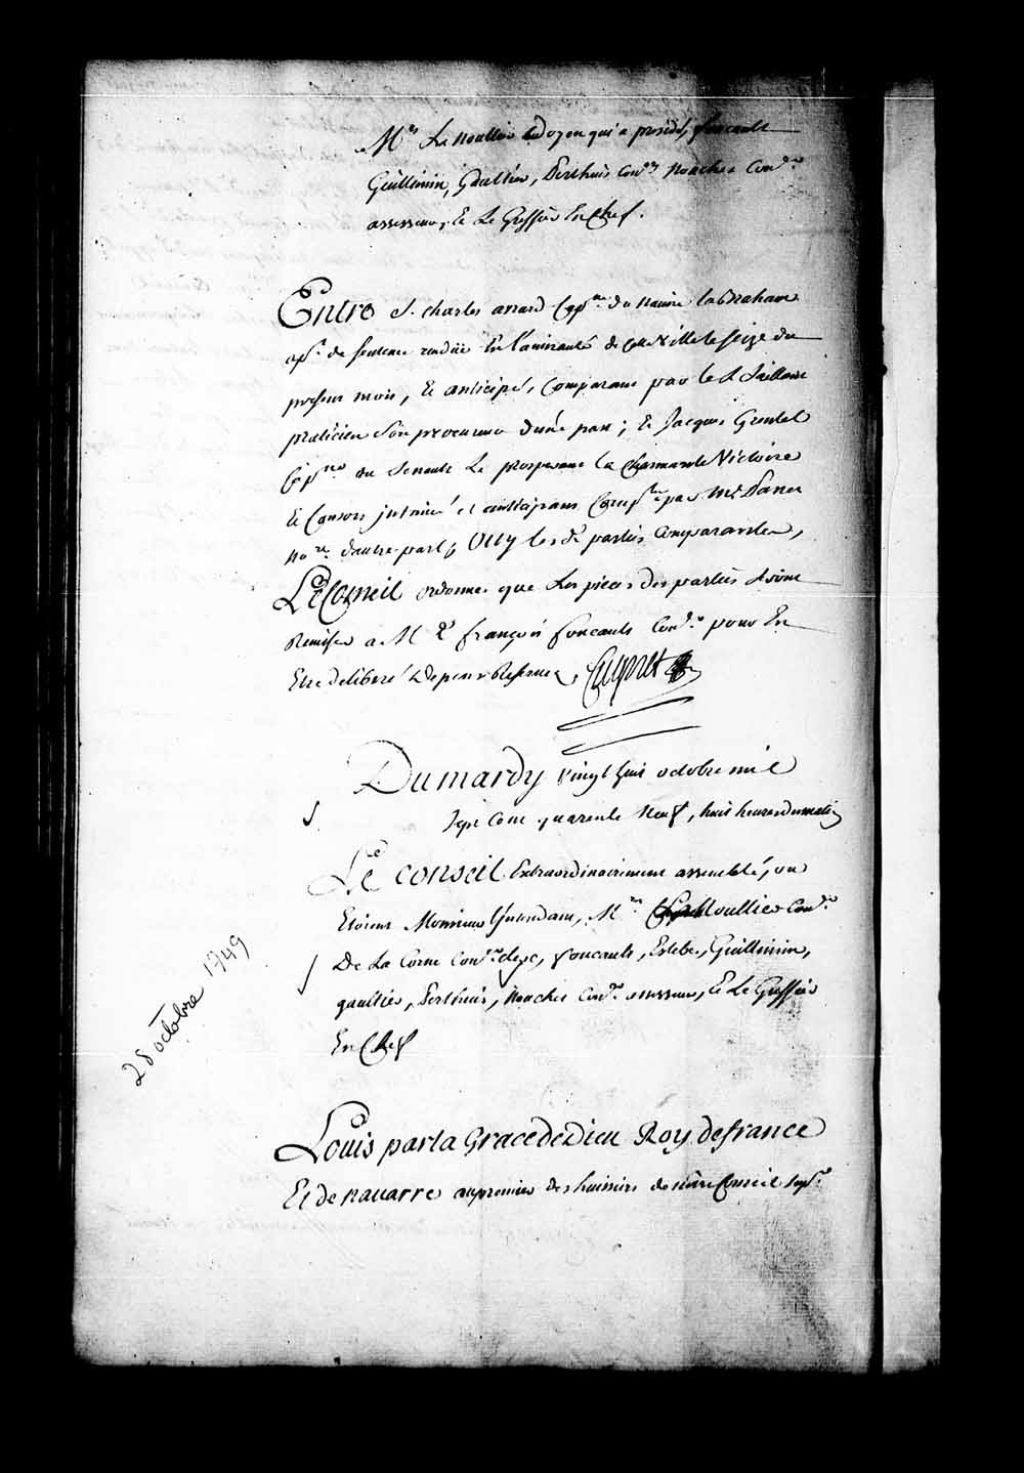 Mrs La Noullier Doyen qui a presidé, foucault
Guillimin, Gaultier, Perthuis Conrs Nouchet Conr
assesseur, Et Le Greffier En Chef.
Entre Sr. Charles Cap.ne du Navire
apt. de sentence rendüe En L'amirauté de cette Ville le seize du
present mois, Et anticipé, Comparant par le Sr Saillant
praticien Son procureur d'une part; Et Jacques
Cap.ne du Senault Le La Charmante Victoire
Et Consors intimé et anticipans Comp.t par Me. Panet
No.re d'autre part; Ouy les de parties Comparantes,
Le Conseil ordonne que Les pieces des parties Seront
Remises a Me françois foucault Con.er pour En
Etre deliberé depens Reservez.
Du mardy vingt huit octobre mil
Sept Cent quarente Neuf, huit heures du matin
Le Conseil Extraordinairement assemblé, ou
Etoient Monsieur L'Intendant, Mrs Noullier Con.er
De La Corne Con.er clerc, foucault, Estebe, Guillimin,
gaultier, Perthuis, Nouchet Con.er assesseur, Et Le Greffier
En Chef
28 octobre 1749
Louis par la Grace de Dieu Roy de france
Et de navarre au premier des huissiers de nôtre Conseil Sup.r